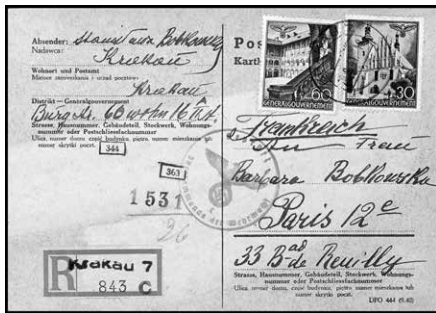 Absender:
Nadawca:
Krakau
Wohnort und Postamt
Miejsce zamieszkania i urząd pocztowy
Krakau
Distrikt — Generalgouvernement
Burgstr. 6B wohn 16
Strasse, Hausnummer, Gebäudeteil, Stockwerk, Wohnungs-
nummer oder Postschliessfachnummer
Ulica, numer domu, część budynku, piętro, numer mieszkania lub
numer skrytki poczt.
344
363
1531
26
R
Krakau 7
843 C
Pos
Karth
60
GENERALGOUVERNEMENT
30
GENERALGOUVERNEMENT
Frankreich
An Frau
Barbara Bobkowska
Paris 12e
33 Bad de Reuilly
Strasse, Hausnummer, Gebäudeteil, Stockwerk, Wohnungs-
nummer oder Postschliessfachnummer
Ulica, numer domu, część budynku, piętro, numer mieszkania lub
numer skrytki poczt.
DPO 444 (9.40)